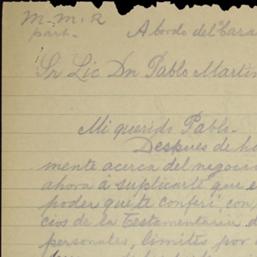 M-M-R
part.
A bordo del "Cara
Sr Lic Dn Pablo Martin
Mi querido Pablo-
Despues de ha
mente acerca del negocio
ahora á suplicarte que e
poder que te conferí con
cios de la Testamentaria d
personales, limites por